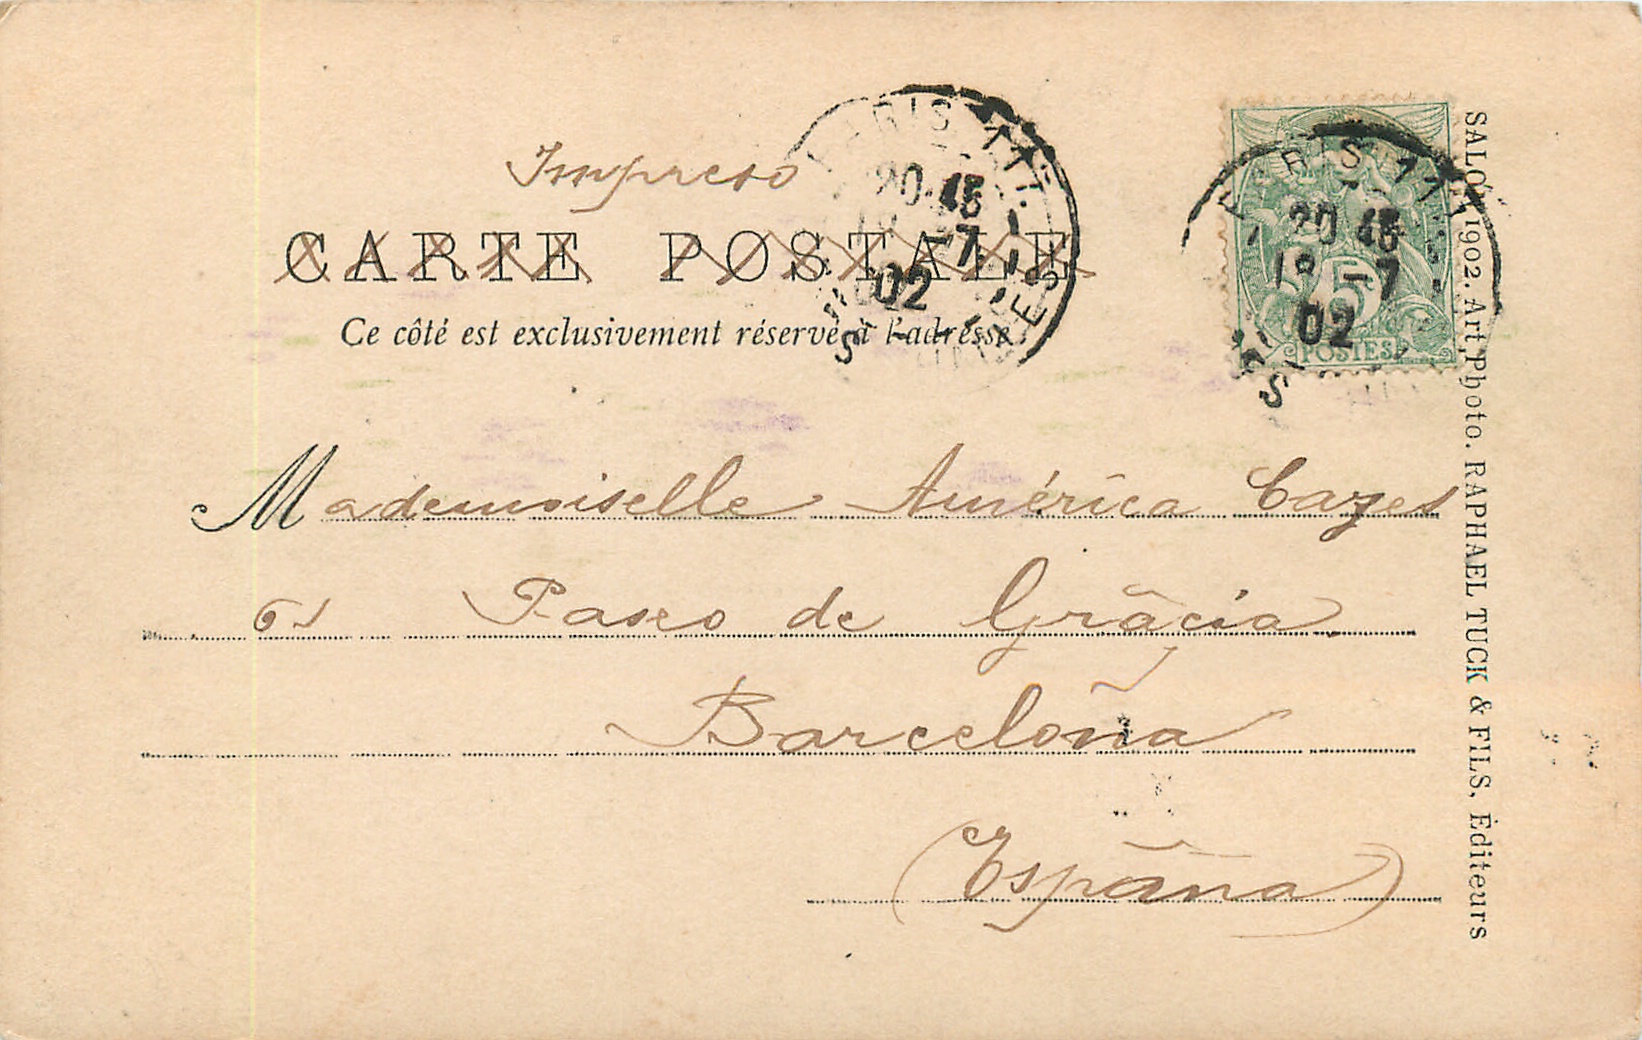 Impreso
CARTE POSTALE
Ce côté est exclusivement réservé à l'adresse
PARIS 111
20 45
18 -7
02
PARIS 111
20 45
18 -7
02
5
POSTES
Mademoiselle América Cazes
61 Paseo de Grācia
Barceloña
(España)
SALON 1902. Art. Photo. RAPHAEL TUCK & FILS, Éditeurs